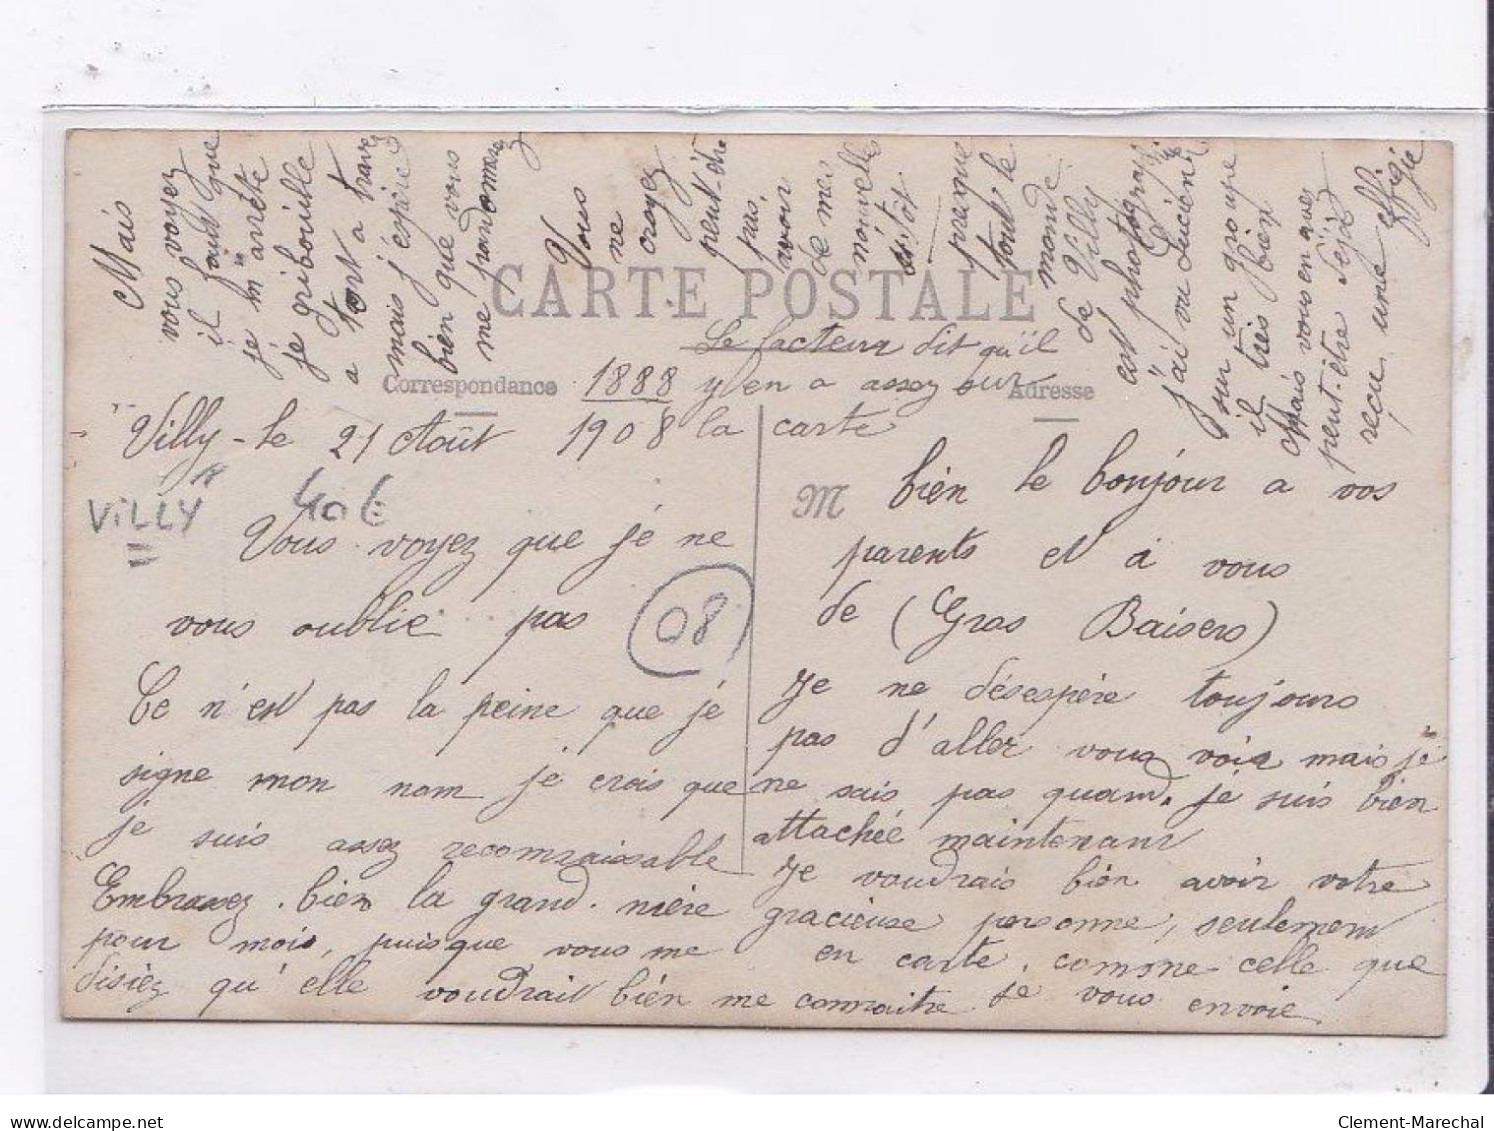 Mais
vous voyez
il faut que
je m'arrête
je gribouille
a tort a travers
mais j'espère
bien que vous
me pardonnerez
Vous
ne
croyez
peut-être
pas
avoir
de mes
nouvelles
presque
tout le
monde
de Villy
est photographié
j'ai vu Lucien
sur un groupe
il très bien
Mais vous en avez
peut-être déjà
reçu une effigie
CARTE POSTALE
Le facteur dit qu'il
Correspondance 1888 y en a assez sur Adresse
Villy - le 21 Août 1908 la carte
VILLY
40 €
Vous voyez que je ne
vous oublie pas
08
Ce n'est pas la peine que je
signe mon nom je crois que
je suis assez reconnaissable
Embrassez bien la grand. mère
pour mois, puisque vous me
disiez qu'elle voudrait bien me connaitre
M bien le bonjour a vos
parents et à vous
de (Gros Baisers)
Je ne désespère toujours
pas d'aller vous voir mais je
ne sais pas quand. je suis bien
attachée maintenant
Je voudrais bien avoir votre
gracieuse personne, seulement
en carte. comme celle que
je vous envoie
www.delcampe.net
Clement-Marechal